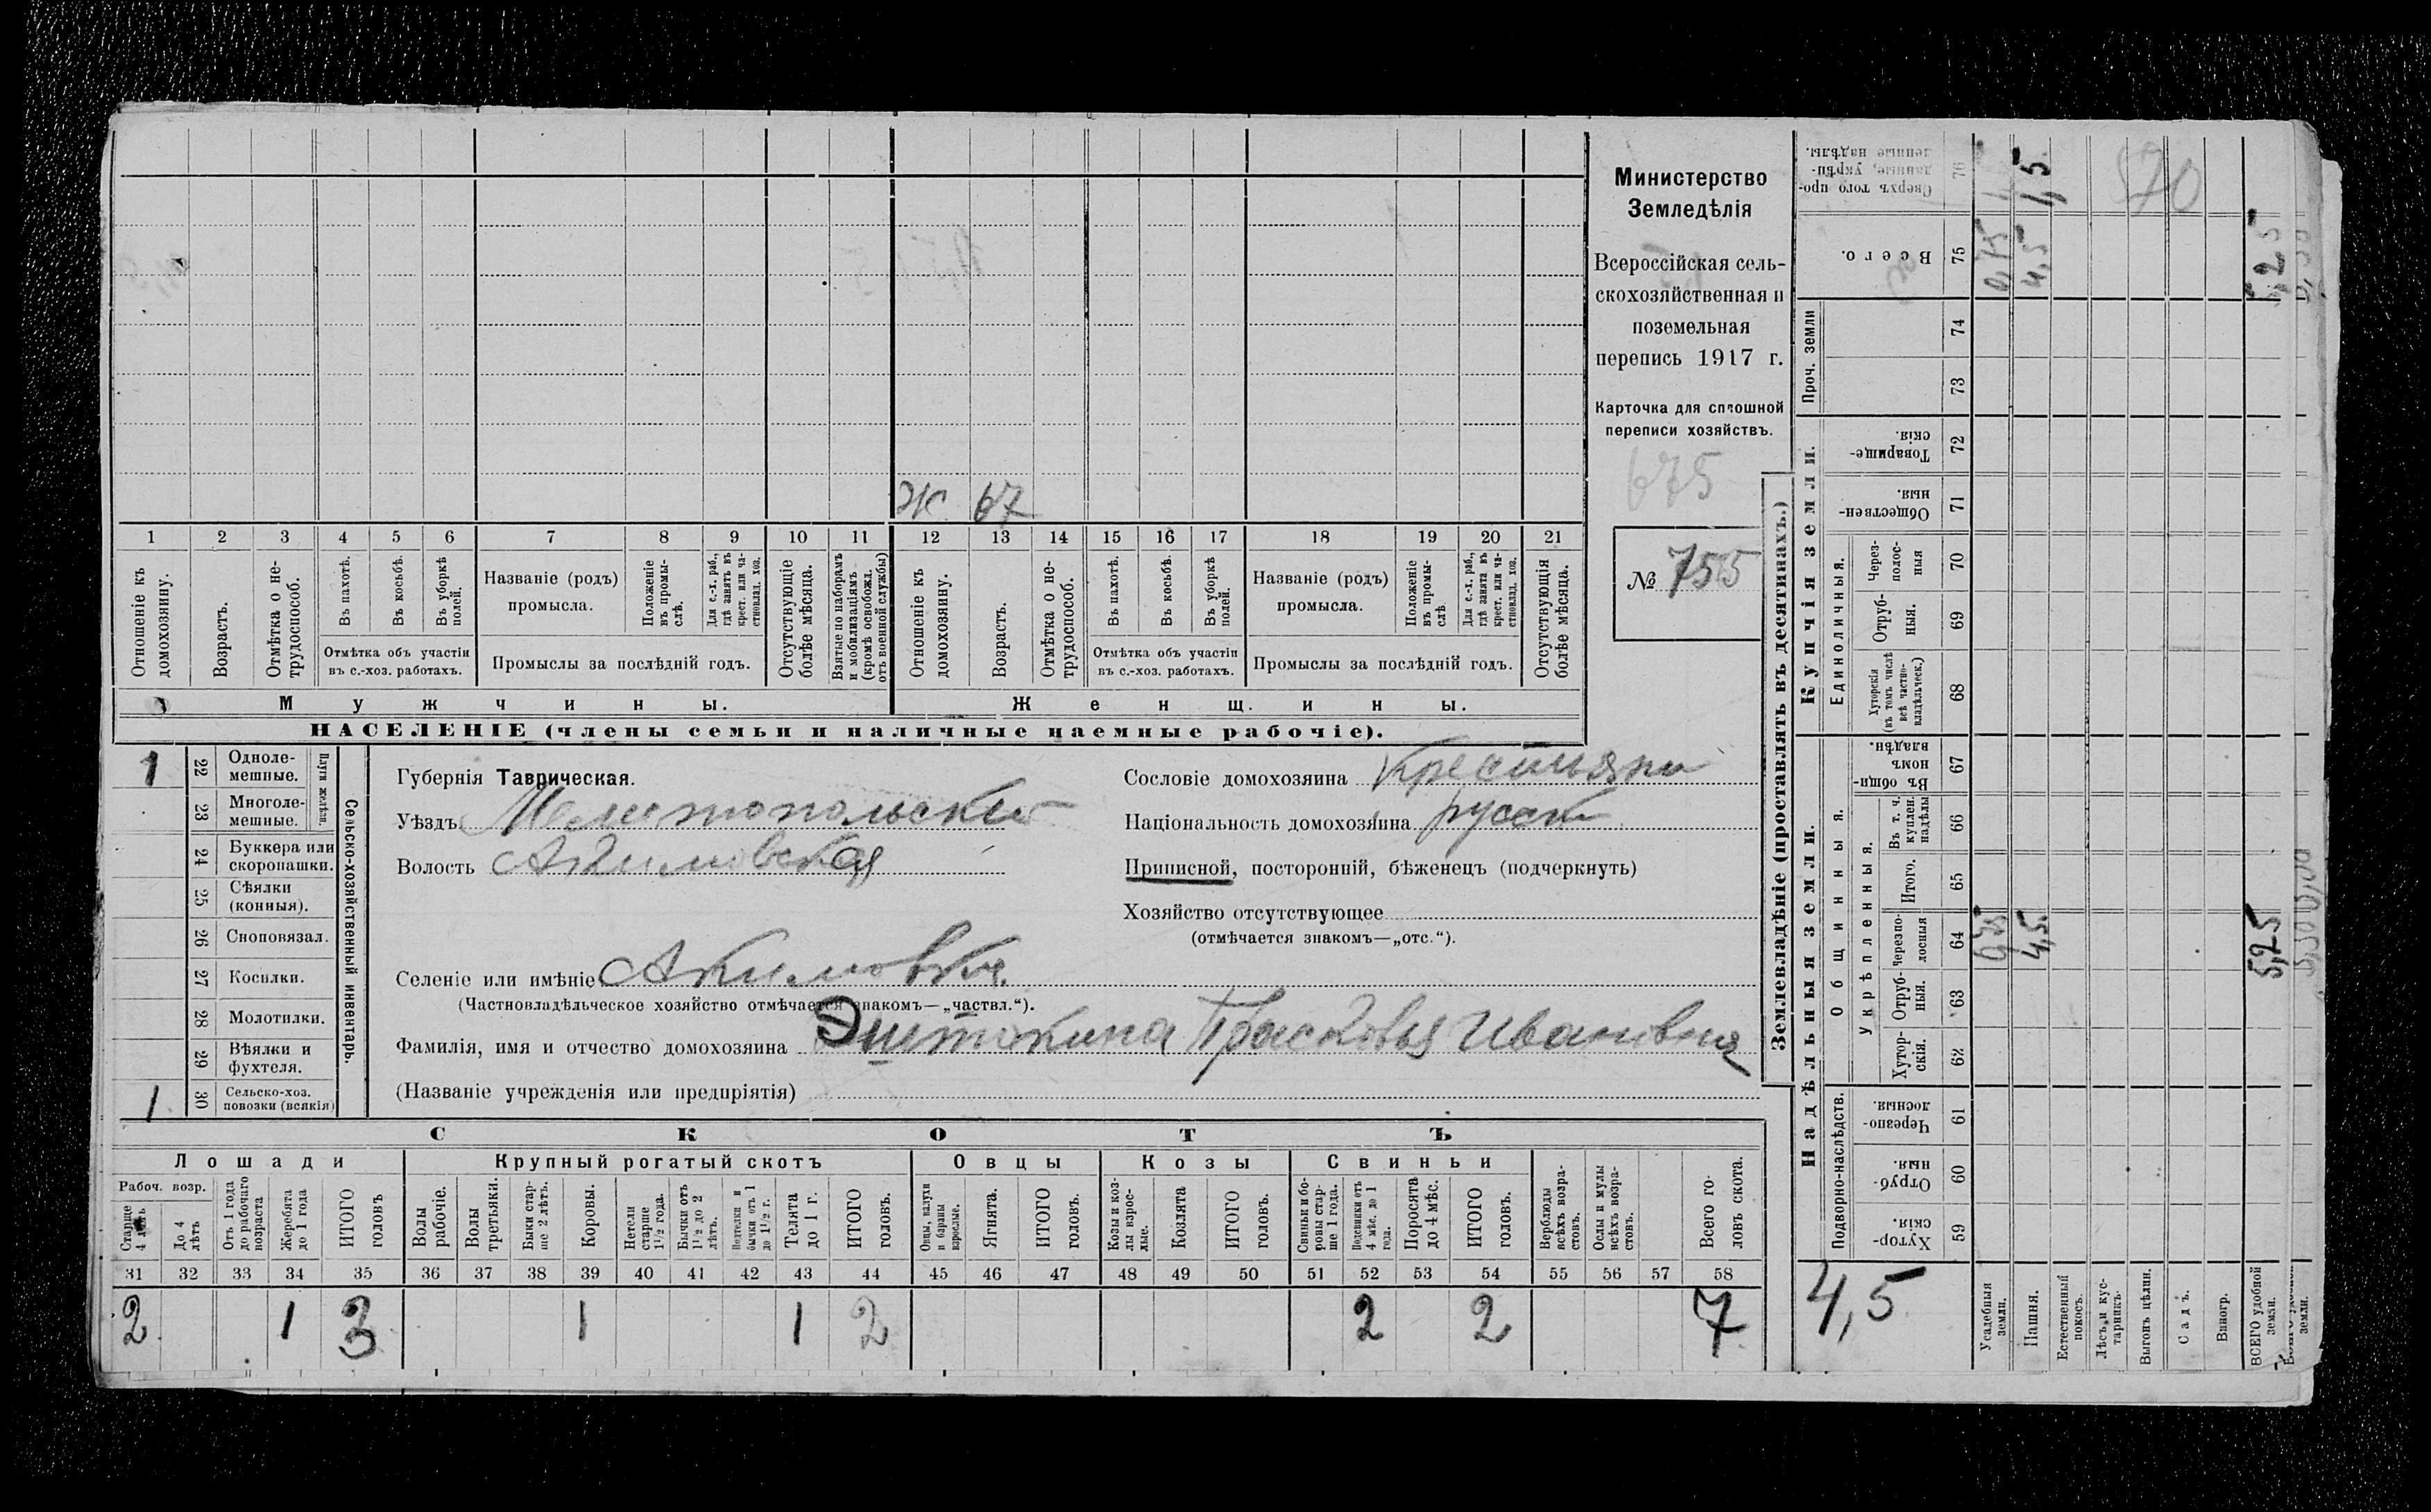 Ж 67
1 2 3 4 5 6 7 8 9 10 11 12 13 14 15 16 17 18 19 20 21
Отношеніе къ домохозяину.
Возрастъ.
Отмѣтка о не-трудоспособ.
Въ пахотѣ.
Въ косьбѣ.
Въ уборкѣ полей.
Отмѣтка объ участіи
въ с.-хоз. работахъ.
Названіе (родъ)
промысла.
Положеніе въ промы-слѣ.
Для с.-х. раб., гдѣ занятъ въ крест. или ча-стновлад. хоз.
Промыслы за послѣдній годъ.
Отсутствующіе болѣе мѣсяца.
Взятые по наборамъ и мобилизаціямъ (кромѣ освобожд. отъ военной службы)
Отношеніе къ домохозяину.
Возрастъ.
Отмѣтка о не-трудоспособ.
Въ пахотѣ.
Въ косьбѣ.
Въ уборкѣ полей.
Отмѣтка объ участіи
въ с.-хоз. работахъ.
Названіе (родъ)
промысла.
Положеніе въ промы-слѣ.
Для с.-х. раб., гдѣ занята въ крест. или ча-стновлад. хоз.
Промыслы за послѣдній годъ.
Отсутствующія болѣе мѣсяца.
Мужчины.
Женщины.
НАСЕЛЕНІЕ (члены семьи и наличные наемные рабочіе).
Министерство
Земледѣлія
Всероссійская сель-
скохозяйственная и
поземельная
перепись 1917 г.
Карточка для сплошной
переписи хозяйствъ.
675
№ 755
1 22 Одноле-
мешные.
23 Многоле-
мешные.
Плуги желѣзн.
24 Буккера или
скоропашки.
25 Сѣялки
(конныя).
26 Сноповязал.
27 Косилки.
28 Молотилки.
29 Вѣялки и
фухтеля.
1 30 Сельско-хоз.
повозки (всякія)
Сельско-хозяйственный инвентарь.
Губернія Таврическая.
Уѣздъ Мелитопольский
Волость Акимовская
Селеніе или имѣніе Акимовка.
(Частновладѣльческое хозяйство отмѣчается знакомъ—„частвл.“).
Фамилія, имя и отчество домохозяина Эштокина Прасковья Ивановна
(Названіе учрежденія или предпріятія)
Сословіе домохозяина Крестьяни
Національность домохозяина русск
Приписной, посторонній, бѣженецъ (подчеркнуть)
Хозяйство отсутствующее
(отмѣчается знакомъ—„отс.“).
СКОТЪ
Лошади
Крупный рогатый скотъ
Овцы
Козы
Свиньи
Рабоч. возр.
Старше 4 лѣтъ
До 4 лѣтъ
Отъ 1 года до рабочаго возраста
Жеребята до 1 года
ИТОГО головъ
Волы рабочіе.
Волы третьяки.
Быки стар-ше 2 лѣтъ.
Коровы.
Нетели старше 1½ года.
Бычки отъ 1½ до 2 лѣтъ.
Подтелки и бычки отъ 1 до 1½ г.
Телята до 1 г.
ИТОГО головъ.
Овцы, валухи и бараны взрослые.
Ягнята.
ИТОГО головъ.
Козы и коз-лы взрос-лые.
Козлята
ИТОГО головъ.
Свиньи и бо-ровы стар-ше 1 года.
Подсвинки отъ 4 мѣс. до 1 года.
Поросята до 4 мѣс.
ИТОГО головъ.
Верблюды всѣхъ возра-стовъ.
Ослы и мулы всѣхъ возра-стовъ.
Всего го-ловъ скота.
31 32 33 34 35 36 37 38 39 40 41 42 43 44 45 46 47 48 49 50 51 52 53 54 55 56 57 58
2 1 3 1 1 2 2 2 7
Землевладѣніе (проставлять въ десятинахъ.)
Надѣльныя земли.
Купчія земли.
Проч. земли
Подворно-наслѣдств.
Общинныя.
Укрѣпленныя.
Единоличныя.
Хутор-скія. 59
Отруб-ныя. 60
Черезпо-лосныя. 61
Хутор-скія. 62
Отруб-ныя. 63
Черезпо-лосныя 64
Итого. 65
Въ т. ч. куплен. надѣлы 66
Въ общин-номъ владѣн. 67
Хуторскія (въ томъ числѣ всѣ частно-владѣльческ.) 68
Отруб-ныя. 69
Через-полос-ныя 70
Обществен-ныя. 71
Товарище-скія. 72
73
74
Всего. 75
Сверхъ того про-данные, укрѣп-ленные надѣлы. 76
4,5
Усадебныя земли.
Пашня.
Естественный покосъ.
Лѣсъ и кус-тарникъ.
Выгонъ цѣлин.
Садъ.
Виногр.
ВСЕГО удобной земли.
0,75 0,75
4,5 4,5 1,5
5,25 5,25
570